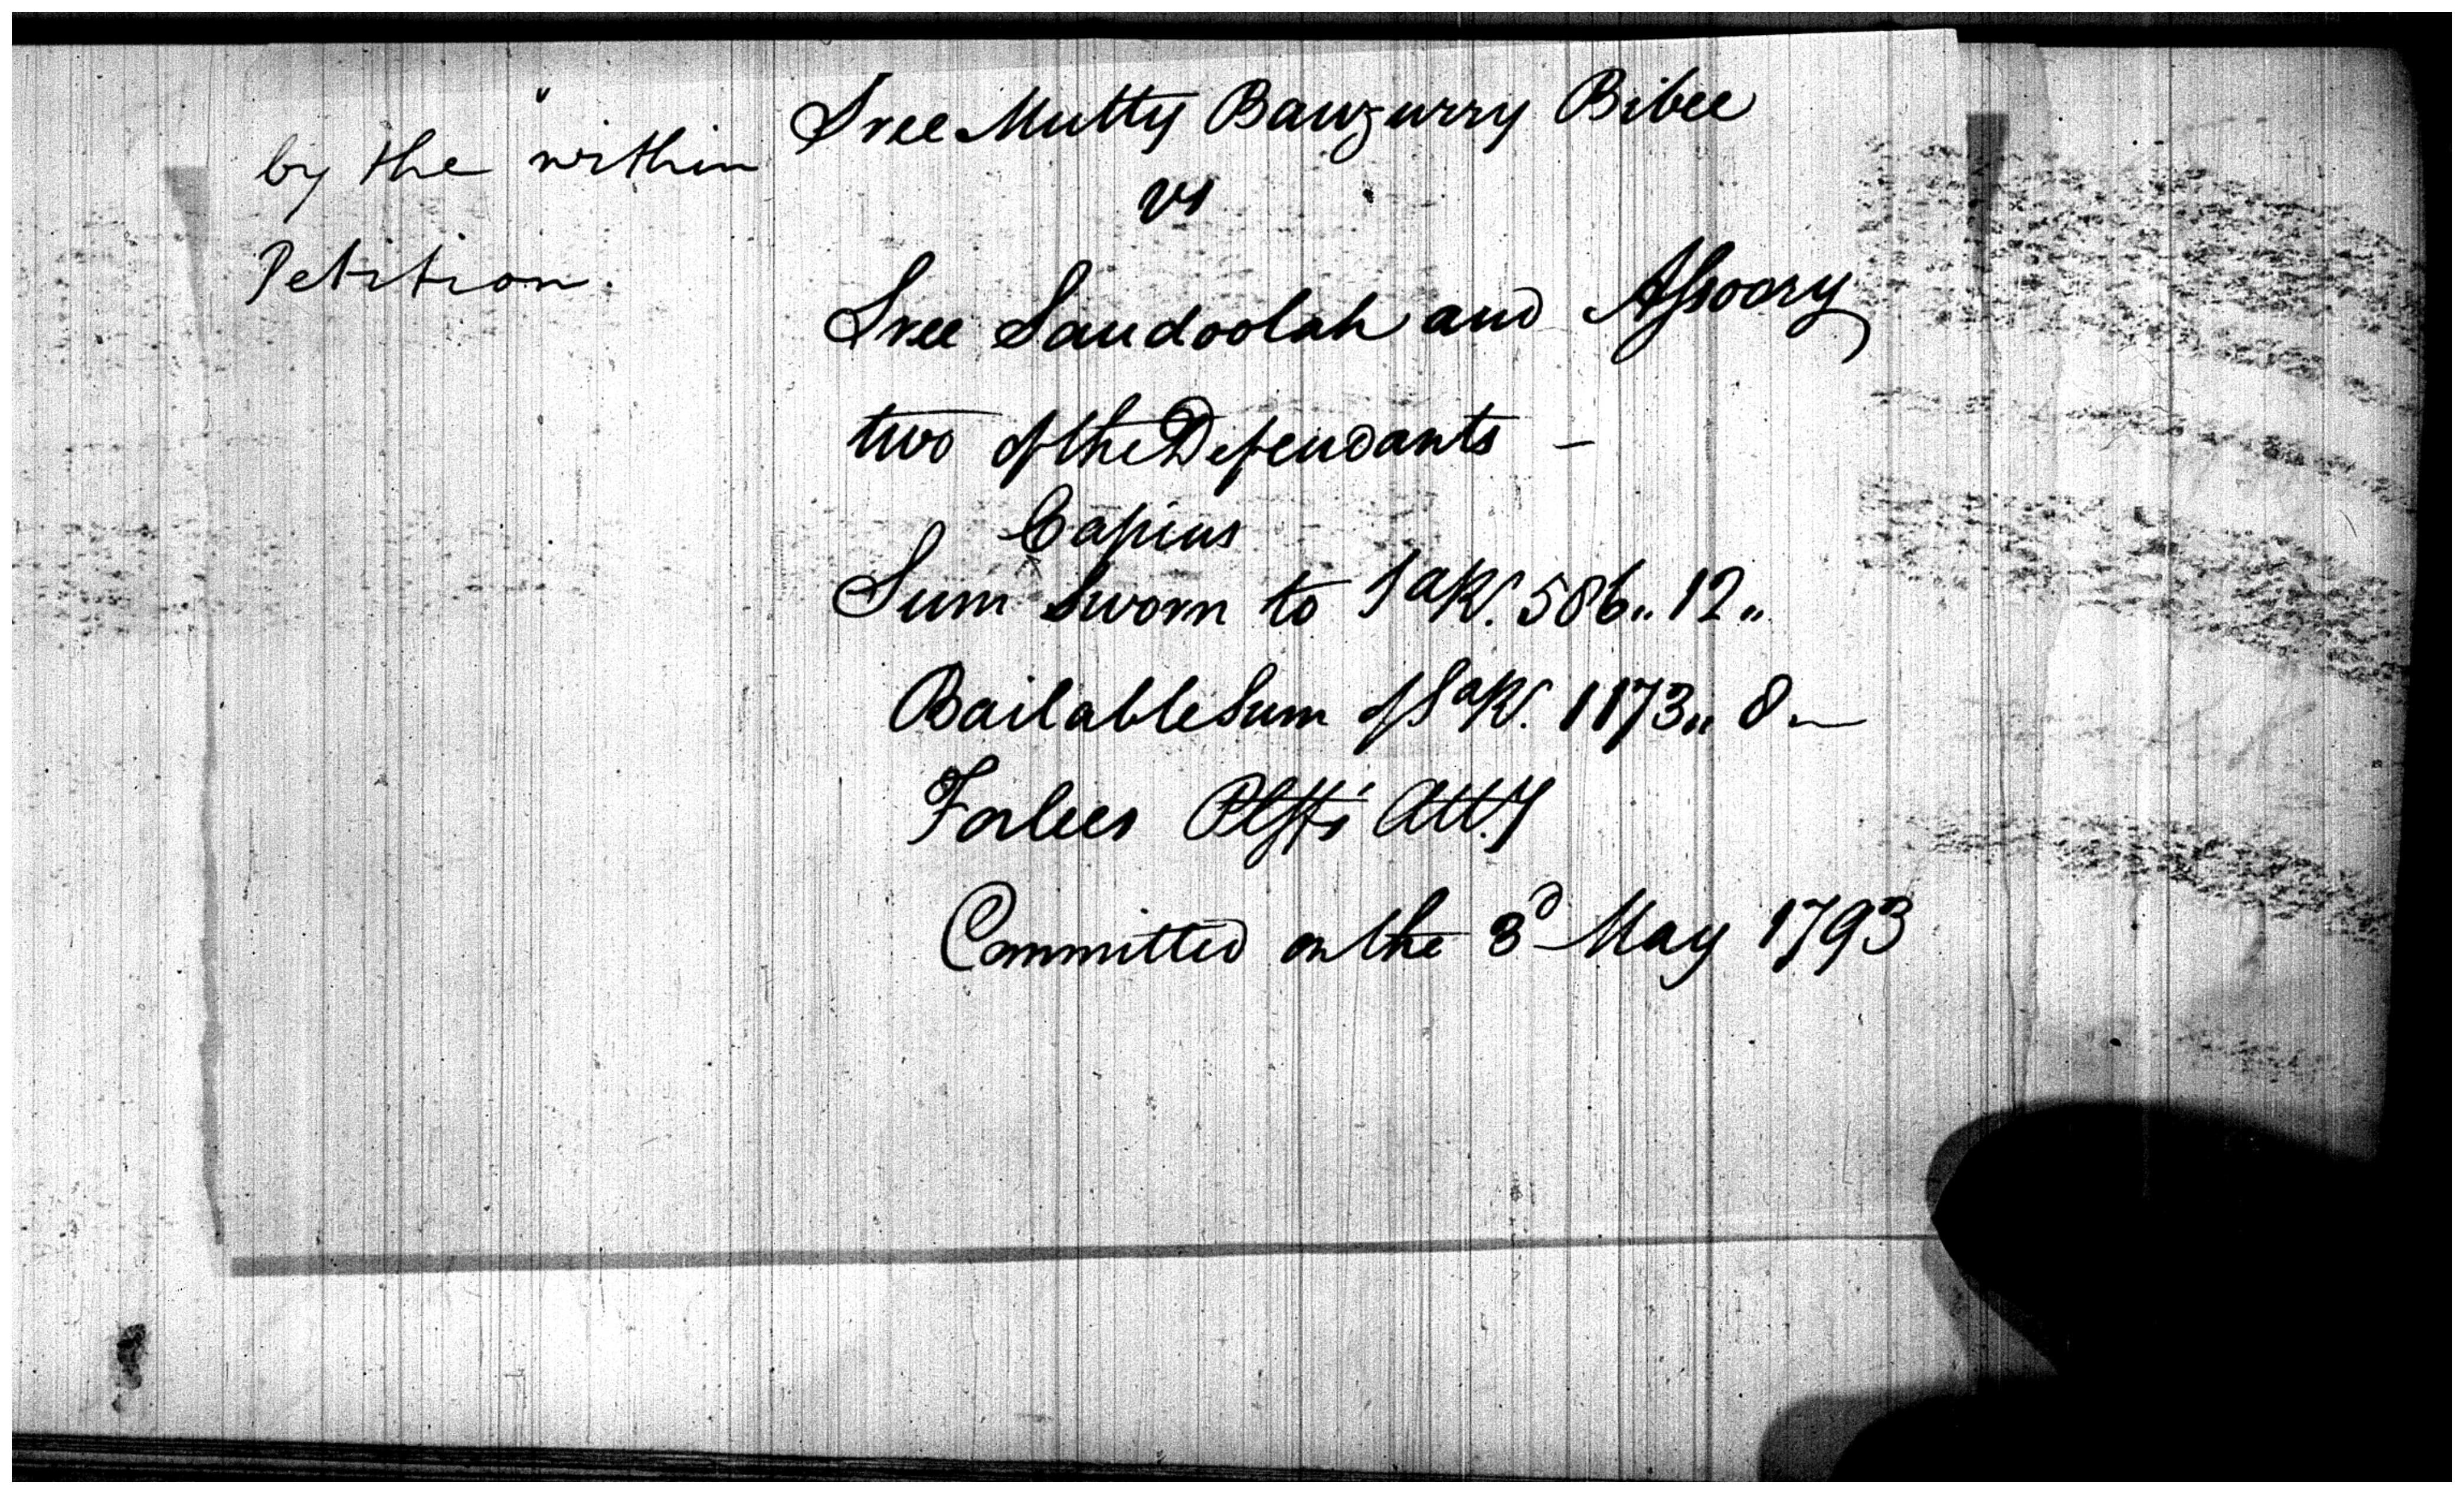 by the within
Petition.
Sree Mutty Bauzurry Bibee
vs
Sree Saudoolah and Assoory
two of the Defendants —
Capias
Sum Sworn to SaRs. 586.. 12..
Bailable Sum of SaRs. 1173.. 8 —
Forbes Plffs Atty
Committed on the 3d May 1793